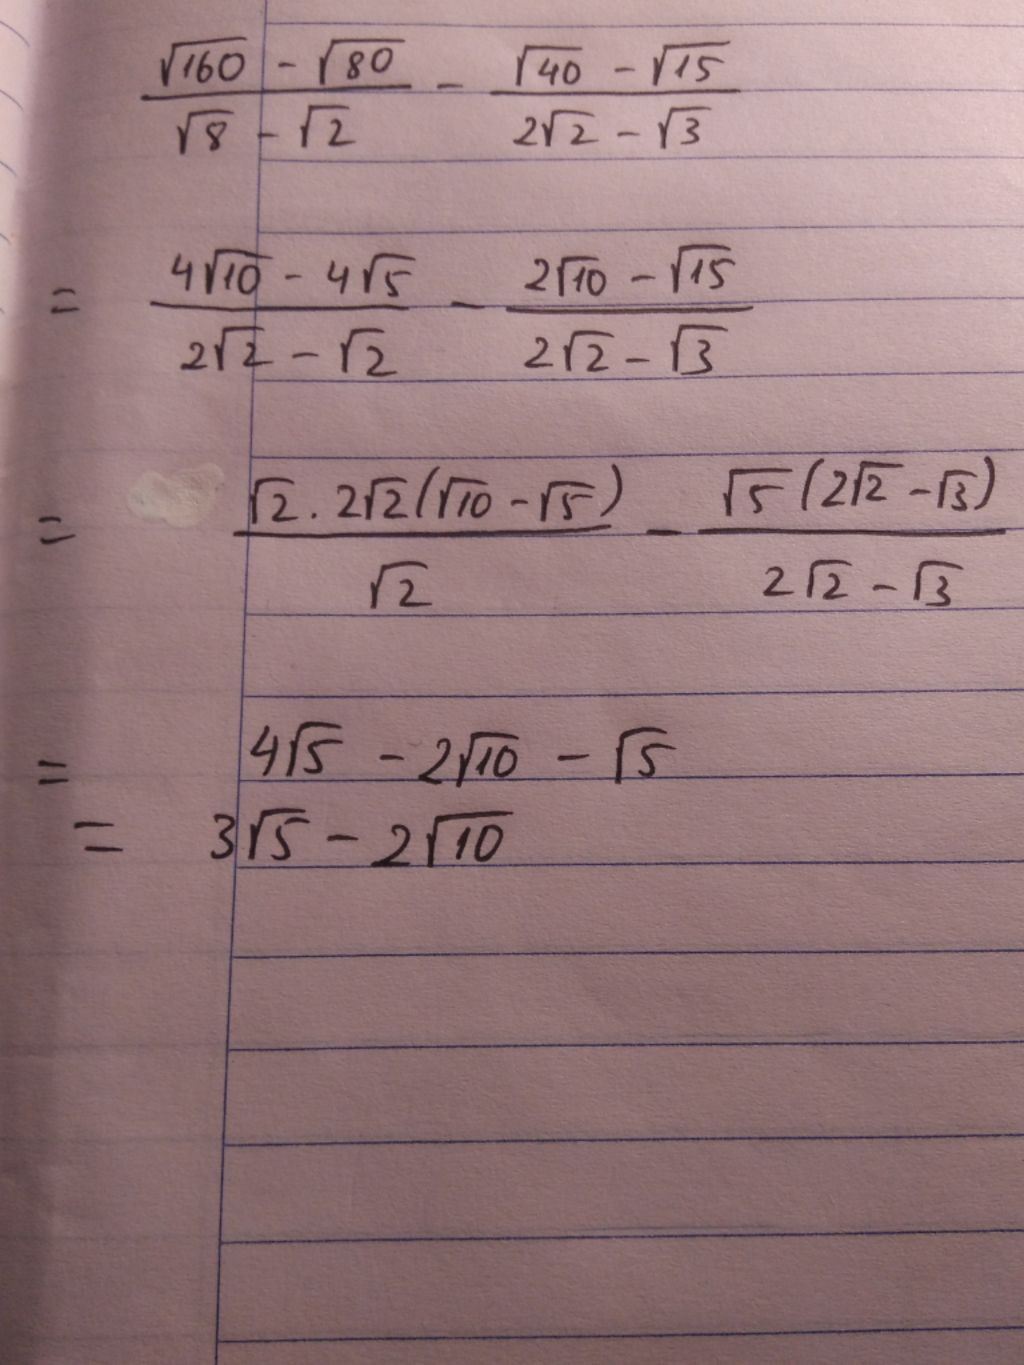 (√160 - √80)/(√8 - √2) - (√40 - √15)/(2√2 - √3)
= (4√10 - 4√5)/(2√2 - √2) - (2√10 - √15)/(2√2 - √3)
= (√2 . 2√2(√10 - √5))/(√2) - (√5(2√2 - √3))/(2√2 - √3)
= 4√5 - 2√10 - √5
= 3√5 - 2√10